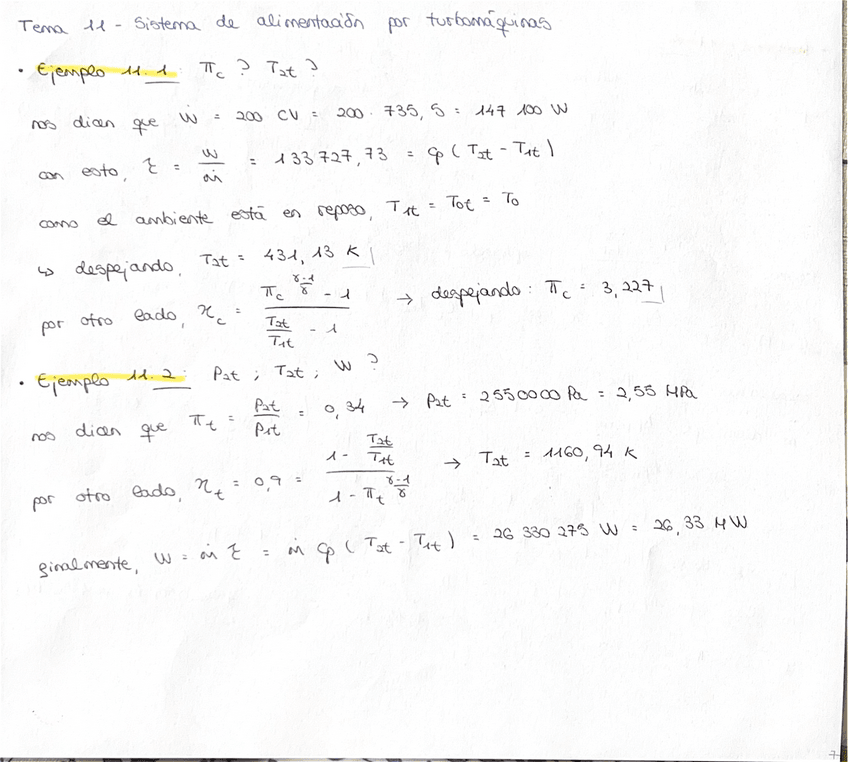 Tema 11 - Sistema de alimentación por turbomáquinas
• Ejemplo 11.1: πc ? T2t ?
nos dicen que Ẇ = 200 CV = 200 · 735,5 = 147 100 W
con esto, τ = W/ṁ = 133 727,73 = cp (T2t - T1t)
como el ambiente está en reposo, T1t = T0t = T0
↳ despejando, T2t = 431,13 K
por otro lado, ηc = (πc^((γ-1)/γ) - 1)/(T2t/T1t - 1) → despejando: πc = 3,227
• Ejemplo 11.2: P2t ; T2t ; W ?
nos dicen que πt = P2t/P1t = 0,34 → P2t = 2550000 Pa = 2,55 MPa
por otro lado, ηt = 0,9 = (1 - T2t/T1t)/(1 - πt^((γ-1)/γ)) → T2t = 1160,94 K
finalmente, W = ṁ τ = ṁ cp (T2t - T1t) = 26 330 275 W = 26,33 MW
7